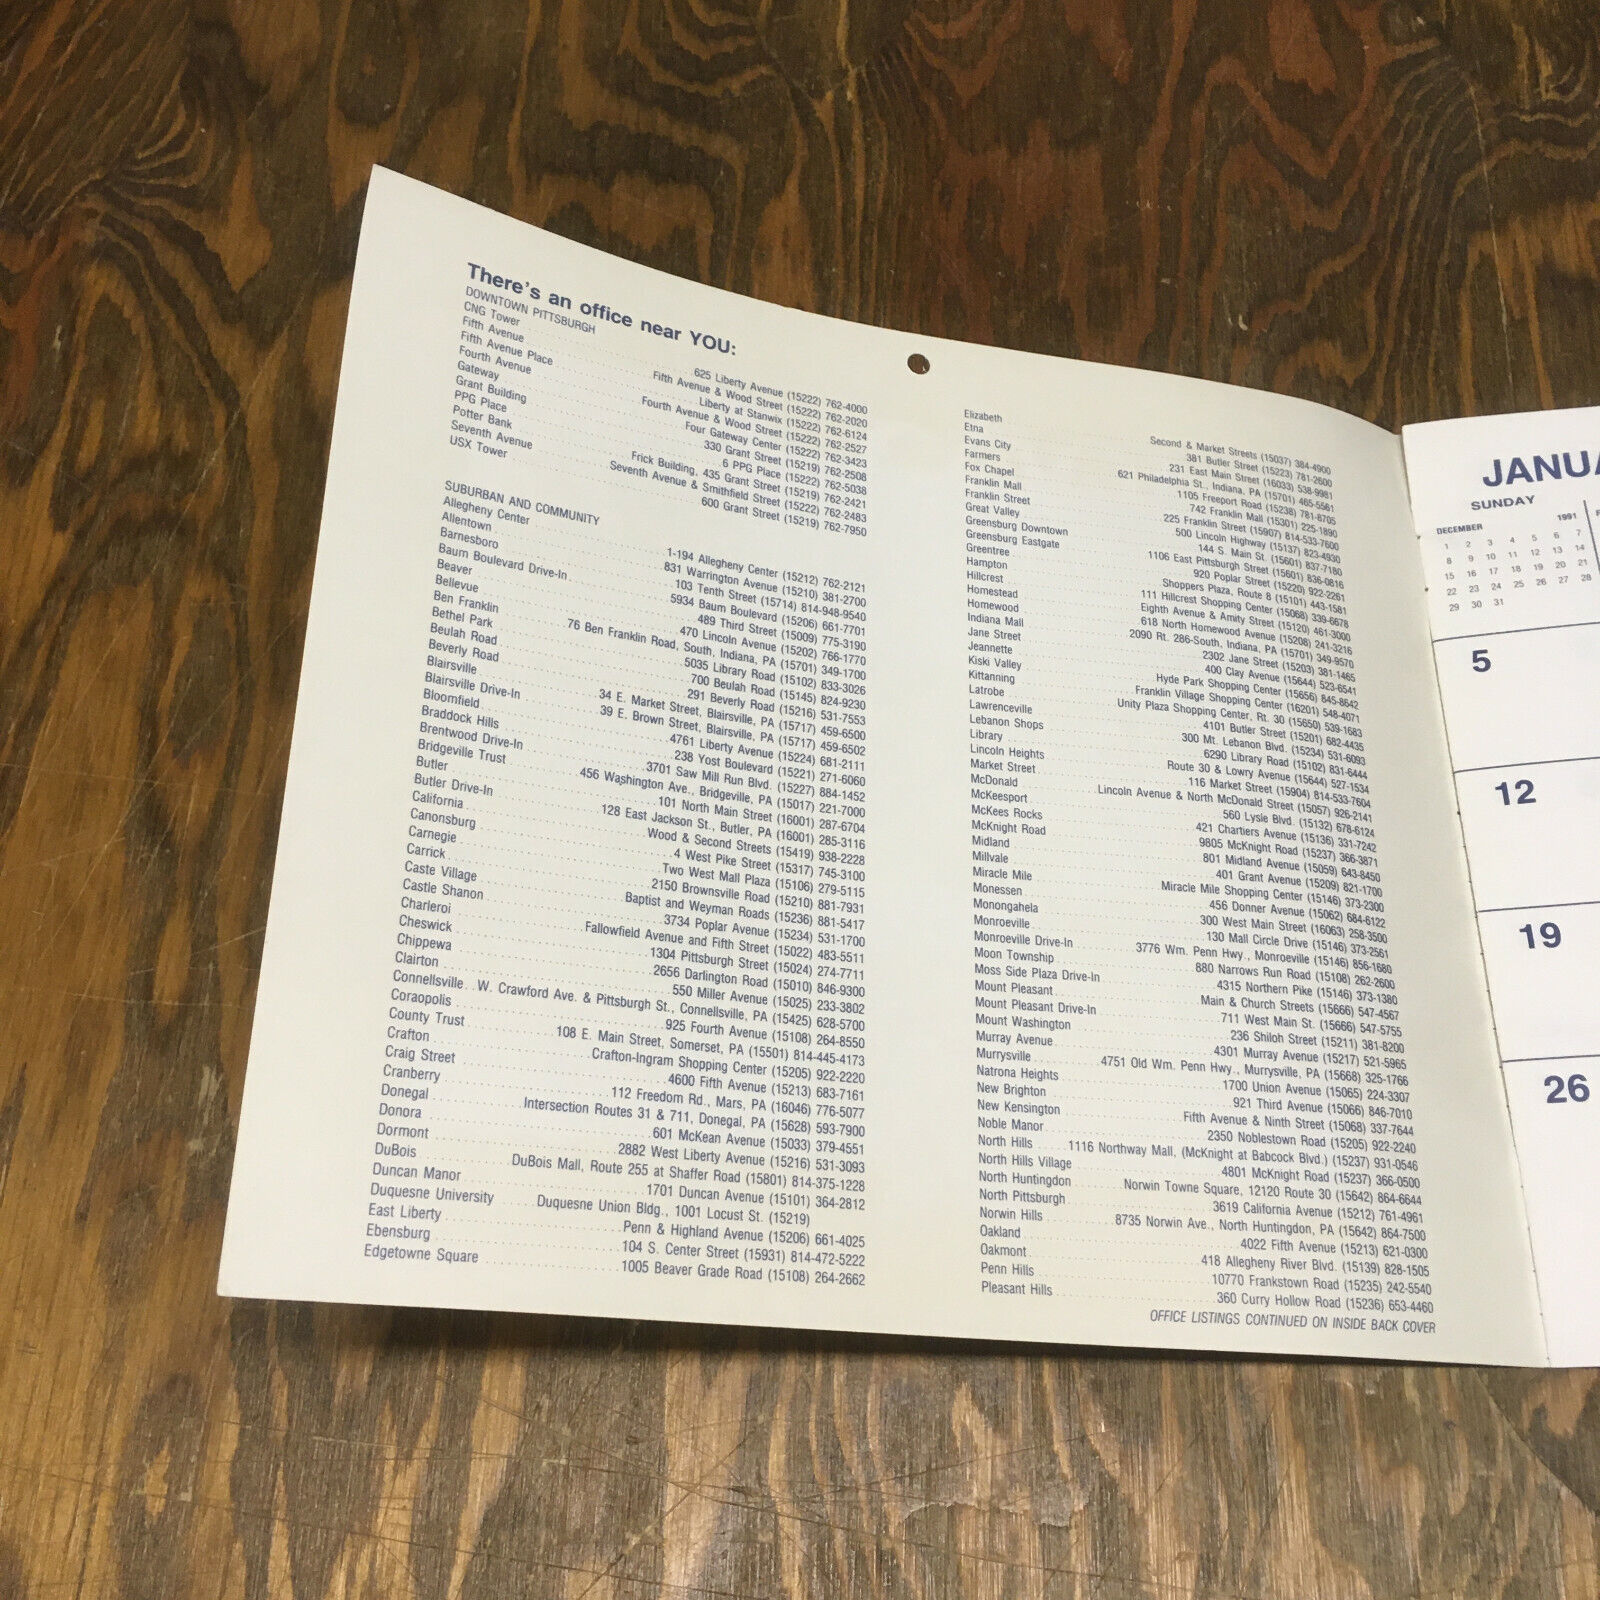 There's an office near YOU:
DOWNTOWN PITTSBURGH
CNG Tower 625 Liberty Avenue (15222) 762-4000
Fifth Avenue Fifth Avenue & Wood Street (15222) 762-2020
Fifth Avenue Place Liberty at Stanwix (15222) 762-6124
Fourth Avenue Fourth Avenue & Wood Street (15222) 762-2527
Gateway Four Gateway Center (15222) 762-3423
Grant Building 330 Grant Street (15219) 762-2508
PPG Place 6 PPG Place (15222) 762-5038
Potter Bank Frick Building, 435 Grant Street (15219) 762-2421
Seventh Avenue Seventh Avenue & Smithfield Street (15222) 762-2483
USX Tower 600 Grant Street (15219) 762-7950
SUBURBAN AND COMMUNITY
Allegheny Center 1-194 Allegheny Center (15212) 762-2121
Allentown 831 Warrington Avenue (15210) 381-2700
Barnesboro 103 Tenth Street (15714) 814-948-9540
Baum Boulevard Drive-In 5934 Baum Boulevard (15206) 661-7701
Beaver 489 Third Street (15009) 775-3190
Bellevue 470 Lincoln Avenue (15202) 766-1770
Ben Franklin 76 Ben Franklin Road, South, Indiana, PA (15701) 349-1700
Bethel Park 5035 Library Road (15102) 833-3026
Beulah Road 700 Beulah Road (15145) 824-9230
Beverly Road 291 Beverly Road (15216) 531-7553
Blairsville 34 E. Market Street, Blairsville, PA (15717) 459-6500
Blairsville Drive-In 39 E. Brown Street, Blairsville, PA (15717) 459-6502
Bloomfield 4761 Liberty Avenue (15224) 681-2111
Braddock Hills 238 Yost Boulevard (15221) 271-6060
Brentwood Drive-In 3701 Saw Mill Run Blvd. (15227) 884-1452
Bridgeville Trust 456 Washington Ave., Bridgeville, PA (15017) 221-7000
Butler 101 North Main Street (16001) 287-6704
Butler Drive-In 128 East Jackson St., Butler, PA (16001) 285-3116
California Wood & Second Streets (15419) 938-2228
Canonsburg 4 West Pike Street (15317) 745-3100
Carnegie Two West Mall Plaza (15106) 279-5115
Carrick 2150 Brownsville Road (15210) 881-7931
Caste Village Baptist and Weyman Roads (15236) 881-5417
Castle Shanon 3734 Poplar Avenue (15234) 531-1700
Charleroi Fallowfield Avenue and Fifth Street (15022) 483-5511
Cheswick 1304 Pittsburgh Street (15024) 274-7711
Chippewa 2656 Darlington Road (15010) 846-9300
Clairton 550 Miller Avenue (15025) 233-3802
Connellsville W. Crawford Ave. & Pittsburgh St., Connellsville, PA (15425) 628-5700
Coraopolis 925 Fourth Avenue (15108) 264-8550
County Trust 108 E. Main Street, Somerset, PA (15501) 814-445-4173
Crafton Crafton-Ingram Shopping Center (15205) 922-2220
Craig Street 4600 Fifth Avenue (15213) 683-7161
Cranberry 112 Freedom Rd., Mars, PA (16046) 776-5077
Donegal Intersection Routes 31 & 711, Donegal, PA (15628) 593-7900
Donora 601 McKean Avenue (15033) 379-4551
Dormont 2882 West Liberty Avenue (15216) 531-3093
DuBois DuBois Mall, Route 255 at Shaffer Road (15801) 814-375-1228
Duncan Manor 1701 Duncan Avenue (15101) 364-2812
Duquesne University Duquesne Union Bldg., 1001 Locust St. (15219)
East Liberty Penn & Highland Avenue (15206) 661-4025
Ebensburg 104 S. Center Street (15931) 814-472-5222
Edgetowne Square 1005 Beaver Grade Road (15108) 264-2662
Elizabeth Second & Market Streets (15037) 384-4900
Etna 381 Butler Street (15223) 781-2600
Evans City 231 East Main Street (16033) 538-9981
Farmers 621 Philadelphia St., Indiana, PA (15701) 465-5561
Fox Chapel 1105 Freeport Road (15238) 781-8705
Franklin Mall 742 Franklin Mall (15301) 225-1890
Franklin Street 225 Franklin Street (15907) 814-533-7600
Great Valley 500 Lincoln Highway (15137) 823-4930
Greensburg Downtown 144 S. Main St. (15601) 837-7180
Greensburg Eastgate 1106 East Pittsburgh Street (15601) 836-0816
Greentree 920 Poplar Street (15220) 922-2261
Hampton Shoppers Plaza, Route 8 (15101) 443-1581
Hillcrest 111 Hillcrest Shopping Center (15068) 339-6678
Homestead Eighth Avenue & Amity Street (15120) 461-3000
Homewood 618 North Homewood Avenue (15208) 241-3216
Indiana Mall 2090 Rt. 286-South, Indiana, PA (15701) 349-9570
Jane Street 2302 Jane Street (15203) 381-1465
Jeannette 400 Clay Avenue (15644) 523-6541
Kiski Valley Hyde Park Shopping Center (15656) 845-8642
Kittanning Franklin Village Shopping Center (16201) 548-4071
Latrobe Unity Plaza Shopping Center, Rt. 30 (15650) 539-1683
Lawrenceville 4101 Butler Street (15201) 682-4435
Lebanon Shops 300 Mt. Lebanon Blvd. (15234) 531-6093
Library 6290 Library Road (15102) 831-6444
Lincoln Heights Route 30 & Lowry Avenue (15644) 527-1534
Market Street 116 Market Street (15904) 814-533-7604
McDonald Lincoln Avenue & North McDonald Street (15057) 926-2141
McKeesport 560 Lysle Blvd. (15132) 678-6124
McKees Rocks 421 Chartiers Avenue (15136) 331-7242
McKnight Road 9805 McKnight Road (15237) 366-3871
Midland 801 Midland Avenue (15059) 643-8450
Millvale 401 Grant Avenue (15209) 821-1700
Miracle Mile Miracle Mile Shopping Center (15146) 373-2300
Monessen 456 Donner Avenue (15062) 684-6122
Monongahela 300 West Main Street (16063) 258-3500
Monroeville 130 Mall Circle Drive (15146) 373-2561
Monroeville Drive-In 3776 Wm. Penn Hwy., Monroeville (15146) 856-1680
Moon Township 880 Narrows Run Road (15108) 262-2600
Moss Side Plaza Drive-In 4315 Northern Pike (15146) 373-1380
Mount Pleasant Main & Church Streets (15666) 547-4567
Mount Pleasant Drive-In 711 West Main St. (15666) 547-5755
Mount Washington 236 Shiloh Street (15211) 381-8200
Murray Avenue 4301 Murray Avenue (15217) 521-5965
Murrysville 4751 Old Wm. Penn Hwy., Murrysville, PA (15668) 325-1766
Natrona Heights 1700 Union Avenue (15065) 224-3307
New Brighton 921 Third Avenue (15066) 846-7010
New Kensington Fifth Avenue & Ninth Street (15068) 337-7644
Noble Manor 2350 Noblestown Road (15205) 922-2240
North Hills 1116 Northway Mall, (McKnight at Babcock Blvd.) (15237) 931-0546
North Hills Village 4801 McKnight Road (15237) 366-0500
North Huntingdon Norwin Towne Square, 12120 Route 30 (15642) 864-6644
North Pittsburgh 3619 California Avenue (15212) 761-4961
Norwin Hills 8735 Norwin Ave., North Huntingdon, PA (15642) 864-7500
Oakland 4022 Fifth Avenue (15213) 621-0300
Oakmont 418 Allegheny River Blvd. (15139) 828-1505
Penn Hills 10770 Frankstown Road (15235) 242-5540
Pleasant Hills 360 Curry Hollow Road (15236) 653-4460
OFFICE LISTINGS CONTINUED ON INSIDE BACK COVER
JANUA
SUNDAY
DECEMBER 1991
1 2 3 4 5 6 7
8 9 10 11 12 13 14
15 16 17 18 19 20 21
22 23 24 25 26 27 28
29 30 31
5
12
19
26